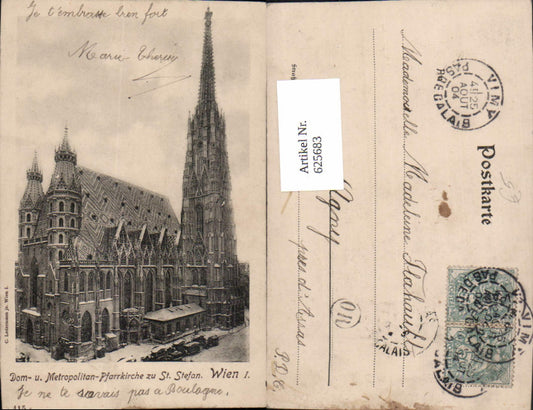 Je t'embrasse bien fort
Marie Thérèse
C. Ledermann jr. Wien I.
Dom- u. Metropolitan-Pfarrkirche zu St. Stefan. Wien I.
Je ne te savais pas à Boulogne.
115
Artikel Nr.
625683
Postkarte
Mademoiselle Madeleine Flahault
Agny
près d'Arras
P.D.C.
VIMY
4 25
AOUT
04
PAS DE CALAIS
OR
VIMY
CALAIS